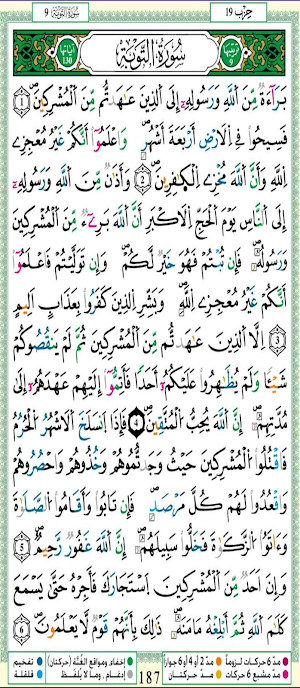 حزب 19
سُورَةُ التَّوْبَةِ 9
ترتيبها 9
سُورَةُ التَّوْبَةِ
آياتها 130
بَرَآءَةٌ مِّنَ اَللَّهِ وَرَسُولِهِۦٓ إِلَى اَلذِينَ عَٰهَدتُّم مِّنَ اَلْمُشْرِكِينَۖ 1
فَسِيحُواْ فِي اِلَارْضِ أَرْبَعَةَ أَشْهُرٖۖ وَاعْلَمُوٓاْ أَنَّكُمْ غَيْرُ مُعْجِزِے
اِللَّهِ وَأَنَّ اَللَّهَ مُخْزِے اِلْكٰفِرِينَۖ 2 وَأَذَٰنٌ مِّنَ اَللَّهِ وَرَسُولِهِۦٓ
إِلَى اَلنَّاسِ يَوْمَ اَلْحَجِّ اِلَاكْبَرِ أَنَّ اَللَّهَ بَرِےٓءٌ مِّنَ اَلْمُشْرِكِينَ
وَرَسُولُهُۥۖ فَإِن تُبْتُمْ فَهُوَ خَيْرٌ لَّكُمْۖ وَإِن تَوَلَّيْتُمْ فَاعْلَمُوٓاْ
أَنَّكُمْ غَيْرُ مُعْجِزِے اِللَّهِۖ وَبَشِّرِ اِلذِينَ كَفَرُواْ بِعَذَابٍ اَلِيمٍ
3 اِلَّا اَلذِينَ عَٰهَدتُّم مِّنَ اَلْمُشْرِكِينَ ثُمَّ لَمْ يَنقُصُوكُمْ
شَيْـٔاٗ وَلَمْ يُظَٰهِرُواْ عَلَيْكُمُۥٓ أَحَداٗ فَأَتِمُّوٓاْ إِلَيْهِمْ عَهْدَهُمُۥٓ إِلَىٰ
مُدَّتِهِمُۥٓۖ إِنَّ اَللَّهَ يُحِبُّ اُلْمُتَّقِينَۖ 4 فَإِذَا اَنسَلَخَ اَلَاشْهُرُ اُلْحُرُمُ
فَاقْتُلُواْ اُلْمُشْرِكِينَ حَيْثُ وَجَدتُّمُوهُمْ وَخُذُوهُمْ وَاحْصُرُوهُمْ
وَاقْعُدُواْ لَهُمْ كُلَّ مَرْصَدٖۖ فَإِن تَابُواْ وَأَقَامُواْ اُلصَّلَوٰةَ
وَءَاتَوُاْ اُلزَّكَوٰةَ فَخَلُّواْ سَبِيلَهُمُۥٓۖ إِنَّ اَللَّهَ غَفُورٌ رَّحِيمٌۖ 5
وَإِنَ اَحَدٌ مِّنَ اَلْمُشْرِكِينَ اَسْتَجَارَكَ فَأَجِرْهُ حَتَّىٰ يَسْمَعَ
كَلَٰمَ اَللَّهِ ثُمَّ أَبْلِغْهُ مَأْمَنَهُۥۖ ذَٰلِكَ بِأَنَّهُمْ قَوْمٌ لَّا يَعْلَمُونَۖ 6
مدّ 6 حركات لزوماً مدّ 2 أو 4 أو 6 جوازاً
مدّ مشبع 6 حركات مدّ حركتان
187
إخفاء، ومواقع الغُنَّة (حركتان) تفخيم
إدغام، وما لا يُلفَظ قلقلة